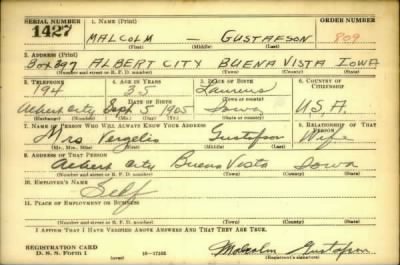 SERIAL NUMBER 1. NAME (Print) ORDER NUMBER
1427 MALCOLM — GUSTAFSON 809
(First) (Middle) (Last)
2. ADDRESS (Print)
Box 397 ALBERT CITY BUENA VISTA IOWA
(Number and street or R. F. D. number) (Town) (County) (State)
3. TELEPHONE 4. AGE IN YEARS 5. PLACE OF BIRTH 6. COUNTRY OF CITIZENSHIP
194 35 Laurens
DATE OF BIRTH (Town or county)
Albert City Sept. 5 1905 Iowa U.S.A.
(Exchange) (Number) (Mo.) (Day) (Yr.) (State or country)
7. NAME OF PERSON WHO WILL ALWAYS KNOW YOUR ADDRESS 8. RELATIONSHIP OF THAT PERSON
Mrs Gustafson Wife
(Mr., Mrs., Miss) (First) (Middle) (Last)
9. ADDRESS OF THAT PERSON
Albert City Buena Vista Iowa
(Number and street or R. F. D. number) (Town) (County) (State)
10. EMPLOYER'S NAME
Self
11. PLACE OF EMPLOYMENT OR BUSINESS
(Number and street or R. F. D. number) (Town) (County) (State)
I AFFIRM THAT I HAVE VERIFIED ABOVE ANSWERS AND THAT THEY ARE TRUE.
REGISTRATION CARD
D. S. S. Form 1 Malcolm Gustafson
(Registrant's signature)